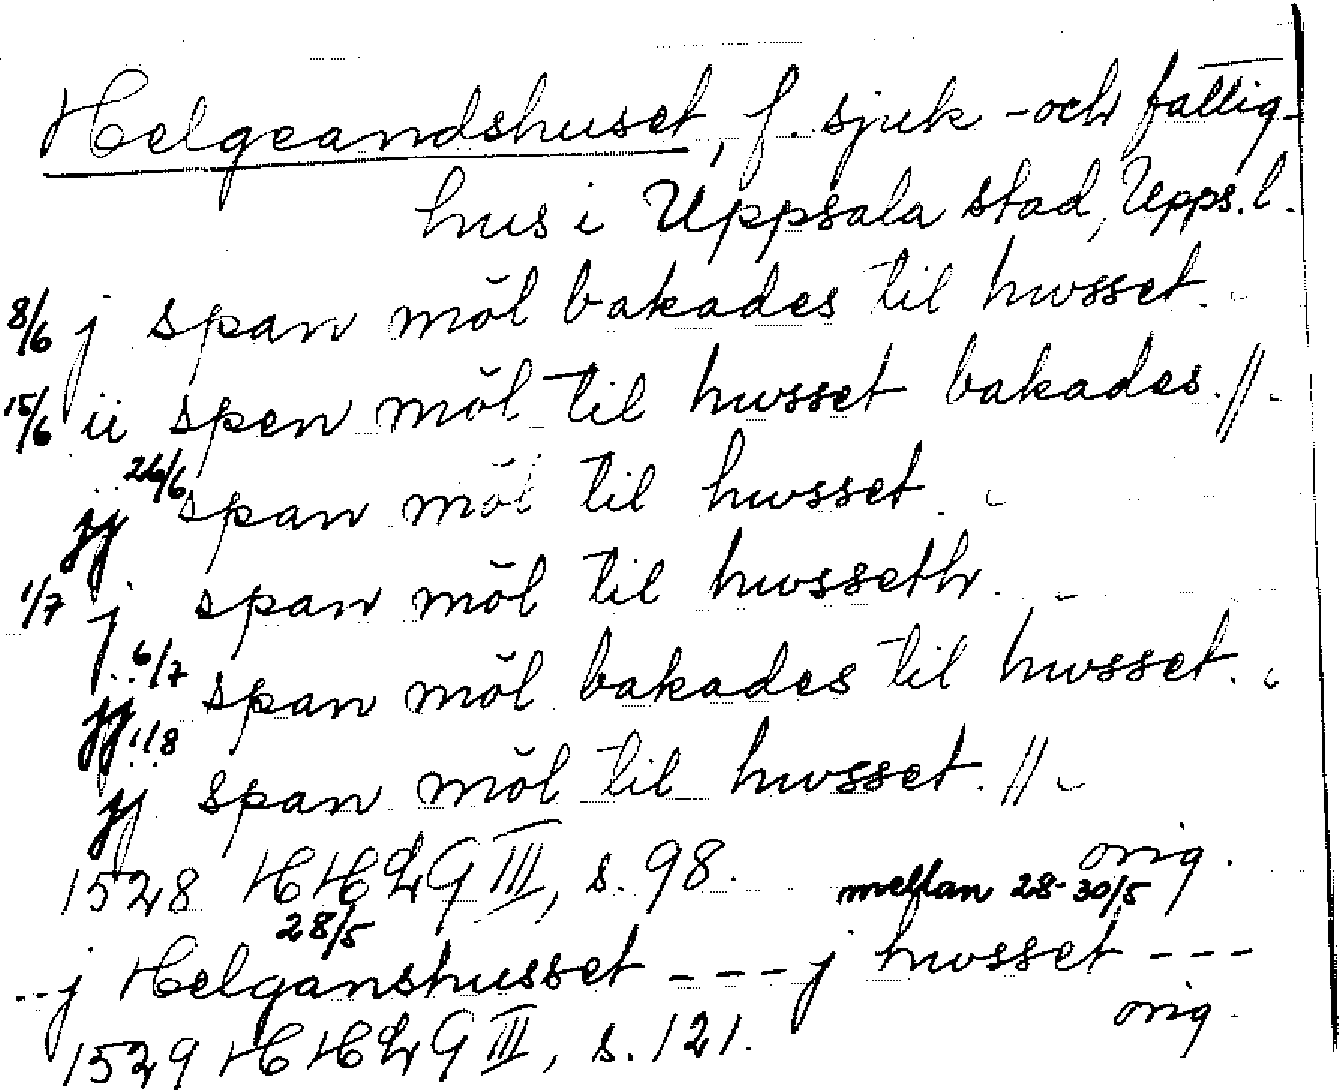 Helgeandshuset, f. sjuk- och fattig-
hus i Uppsala stad, Upps. l.
8/6 j span mŏl bakades til hwsset.
15/6 ii spen mŏl til hwsset bakades. //.
26/6
jj span mŏl til hwsset.
1/7 j span mŏl til hwsseth.
6/7
jj span mŏl bakades til hwsset.
1/8
jj span mŏl til hwsset. //
orig.
1528 HH III, s. 98.
mellan 28-30/5
28/5
--j Helganshusset --- j hwsset ---
orig.
1529 HH III, s. 121.